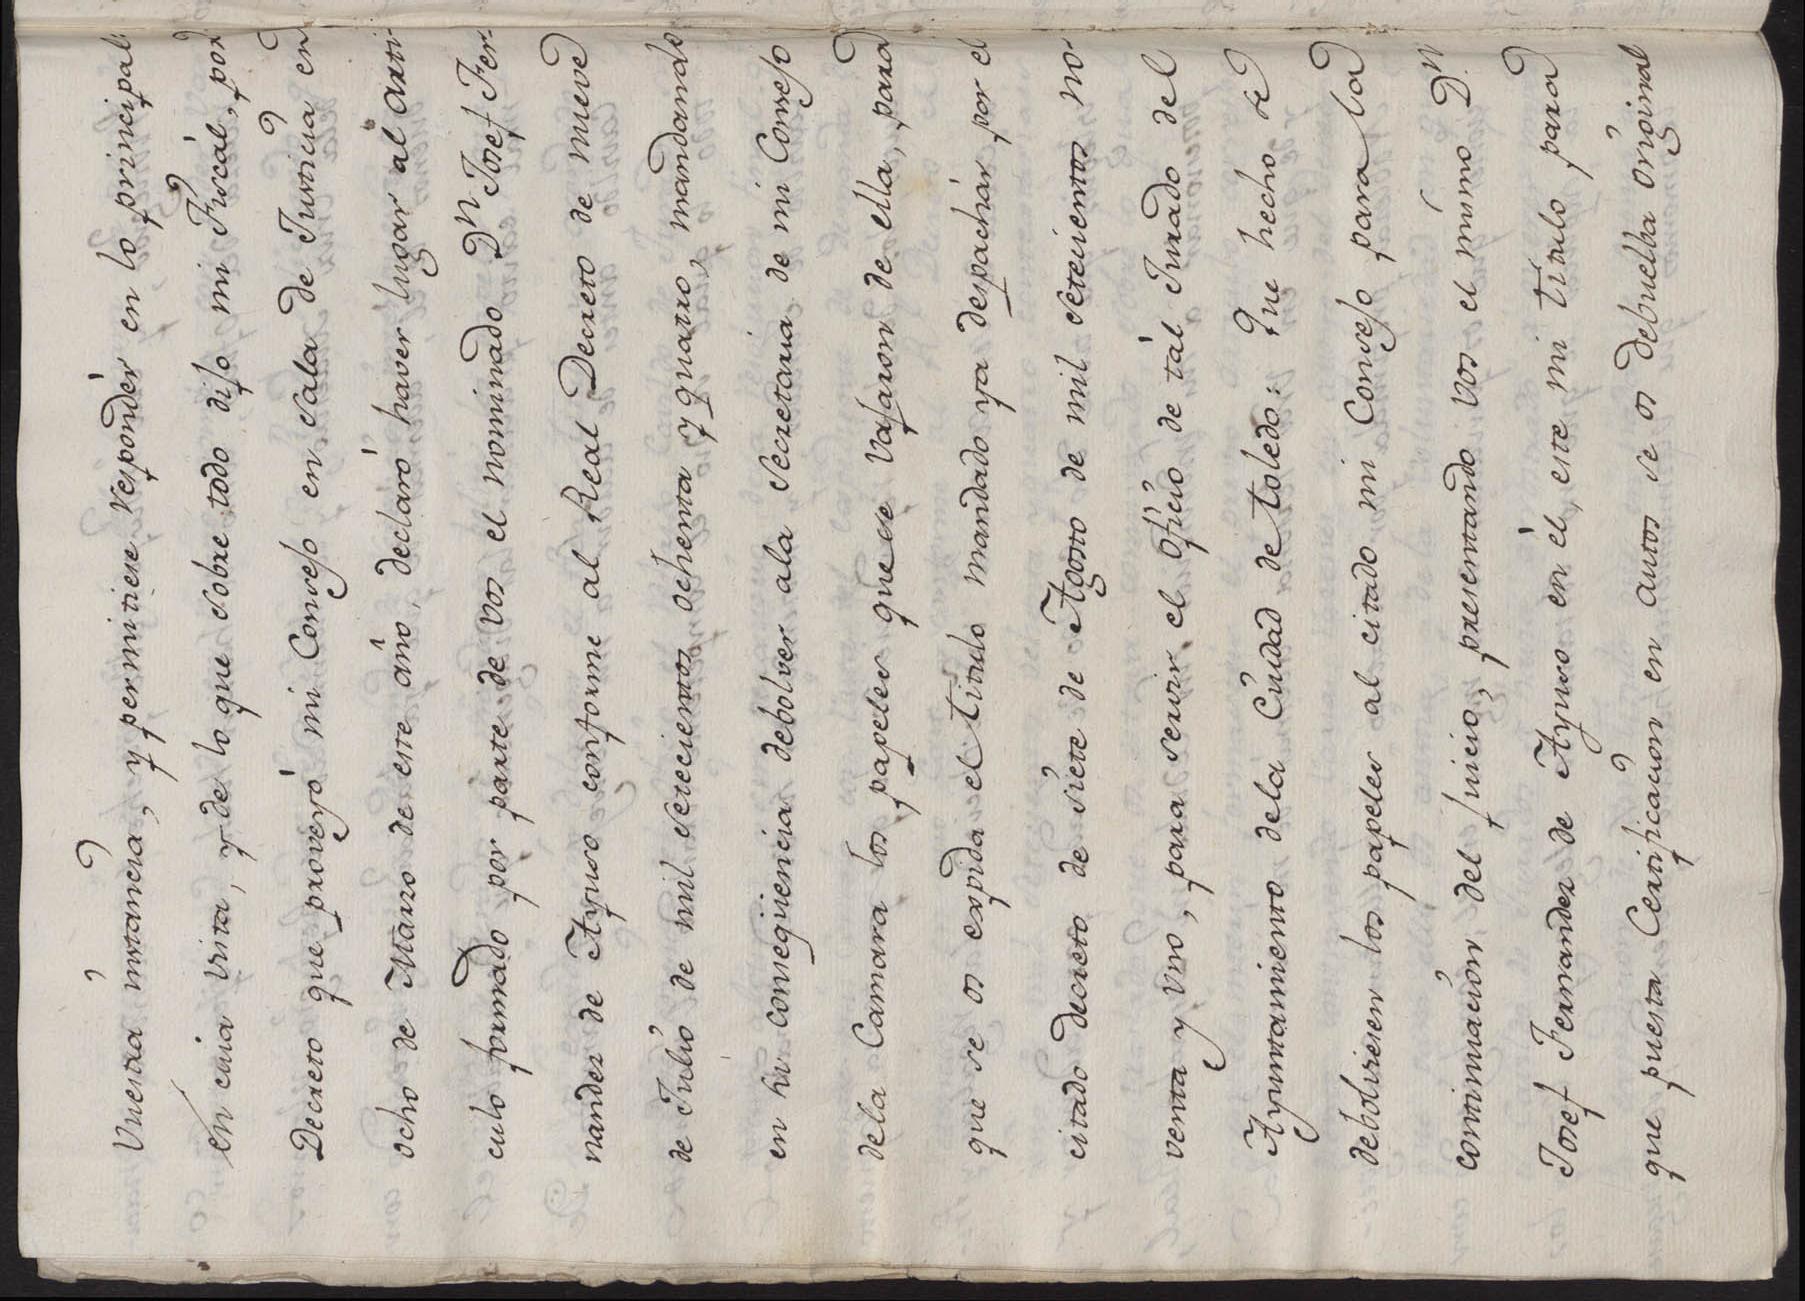 Vuestra instancia, y permitiese responder en lo principal:
en cuia vista, y de lo que sobre todo dijo mi Fiscál, por
Decreto que proveyó mi Consejo en sala de Justicia en
ocho de Marzo de este año, declaró haver lugar al arti-
culo formado por parte de vos el nominado Dn. Josef Fer-
nandez de Ayuso conforme al Real Decreto de nueve
de Julio de mil setecientos ochenta y quatro, mandando
en su conseqüencia debolver ala Secretaria de mi Consejo
dela Camara los papeles que se vajaron de ella, para
que se os expida el titulo mandado ya despachár por el
citado decreto de siete de Agosto de mil setecientos no-
venta y uno, para servir el oficio de tál Jurado del
Ayuntamiento dela Ciudad de toledo: Que hecho se
debolviesen los papeles al citado mi Consejo para la
continuación del juicio, presentando vos el mismo Dn.
Josef Fernandez de Ayuso en él, este mi titulo para
que puesta Certificacion en autos se os debuelba original